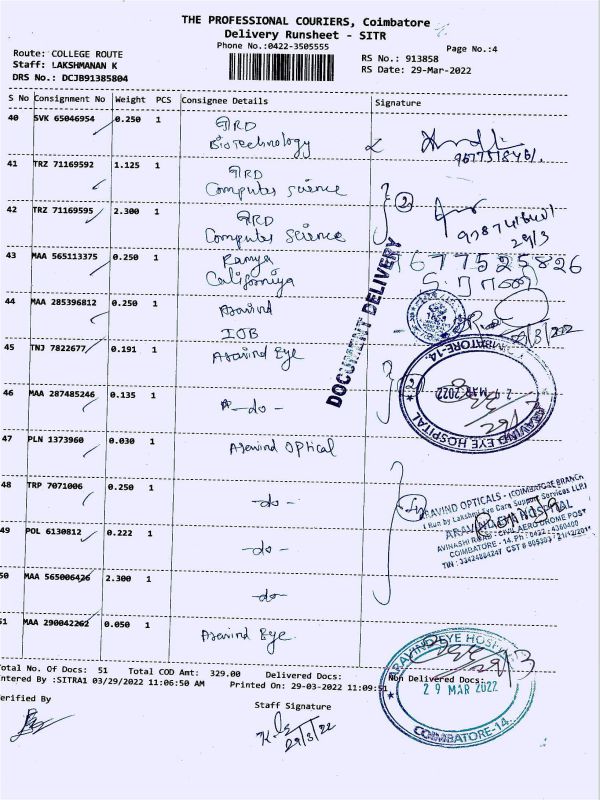 THE PROFESSIONAL COURIERS, Coimbatore
Delivery Runsheet - SITR
Phone No.:0422-3505555
Page No.:4
Route: COLLEGE ROUTE
Staff: LAKSHMANAN K
DRS No.: DCJB91385804
RS No.: 913858
RS Date: 29-Mar-2022
S No Consignment No Weight PCS Consignee Details Signature
40 SVK 65046954 0.250 1 GRD
Biotechnology
41 TRZ 71169592 1.125 1 GRD
Computer science
42 TRZ 71169595 2.300 1 GRD
Computer Science
2
29/3
43 MAA 565113375 0.250 1 Ramya
California
9677525826
44 MAA 285396812 0.250 1 Aravind
IOB
29/3/2022
DOCUMENT DELIVERY
45 TNJ 7822677 0.191 1 Aravind Eye
46 MAA 287485246 0.135 1 -do-
2
ARAVIND EYE HOSPITAL
COIMBATORE-14.
29 MAR 2022
47 PLN 1373960 0.030 1 Aravind Optical
48 TRP 7071006 0.250 1 -do-
49 POL 6130812 0.222 1 -do-
50 MAA 565006426 2.300 1 -do-
ARAVIND OPTICALS - (COIMBATORE BRANCH)
( Run by Lakshmi Eye Care Support Services LLP)
ARAVIND EYE HOSPITAL
AVINASHI ROAD, CIVIL AERODROME POST
COIMBATORE - 14. Ph: 0422 - 4360400
51 MAA 290042262 0.050 1 Aravind Eye
Total No. Of Docs: 51 Total COD Amt: 329.00 Delivered Docs: Non Delivered Docs:
Entered By :SITRA1 03/29/2022 11:06:50 AM Printed On: 29-03-2022 11:09:51
ARAVIND EYE HOSPITAL
29 MAR 2022
COIMBATORE-14.
Verified By
Staff Signature
29/3/22